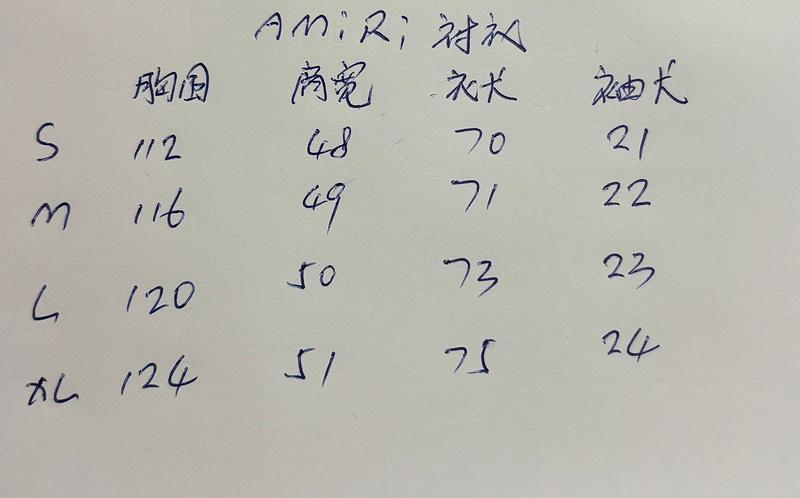 AMiRi 衬衫
胸围 肩宽 衣长 袖长
S 112 48 70 21
M 116 49 71 22
L 120 50 73 23
XL 124 51 75 24